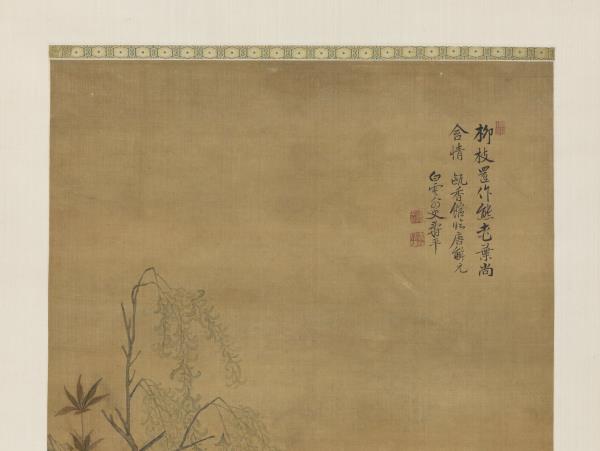 柳枝罢作態老葉尚
含情 甌香館臨唐解元
白雲外史壽平